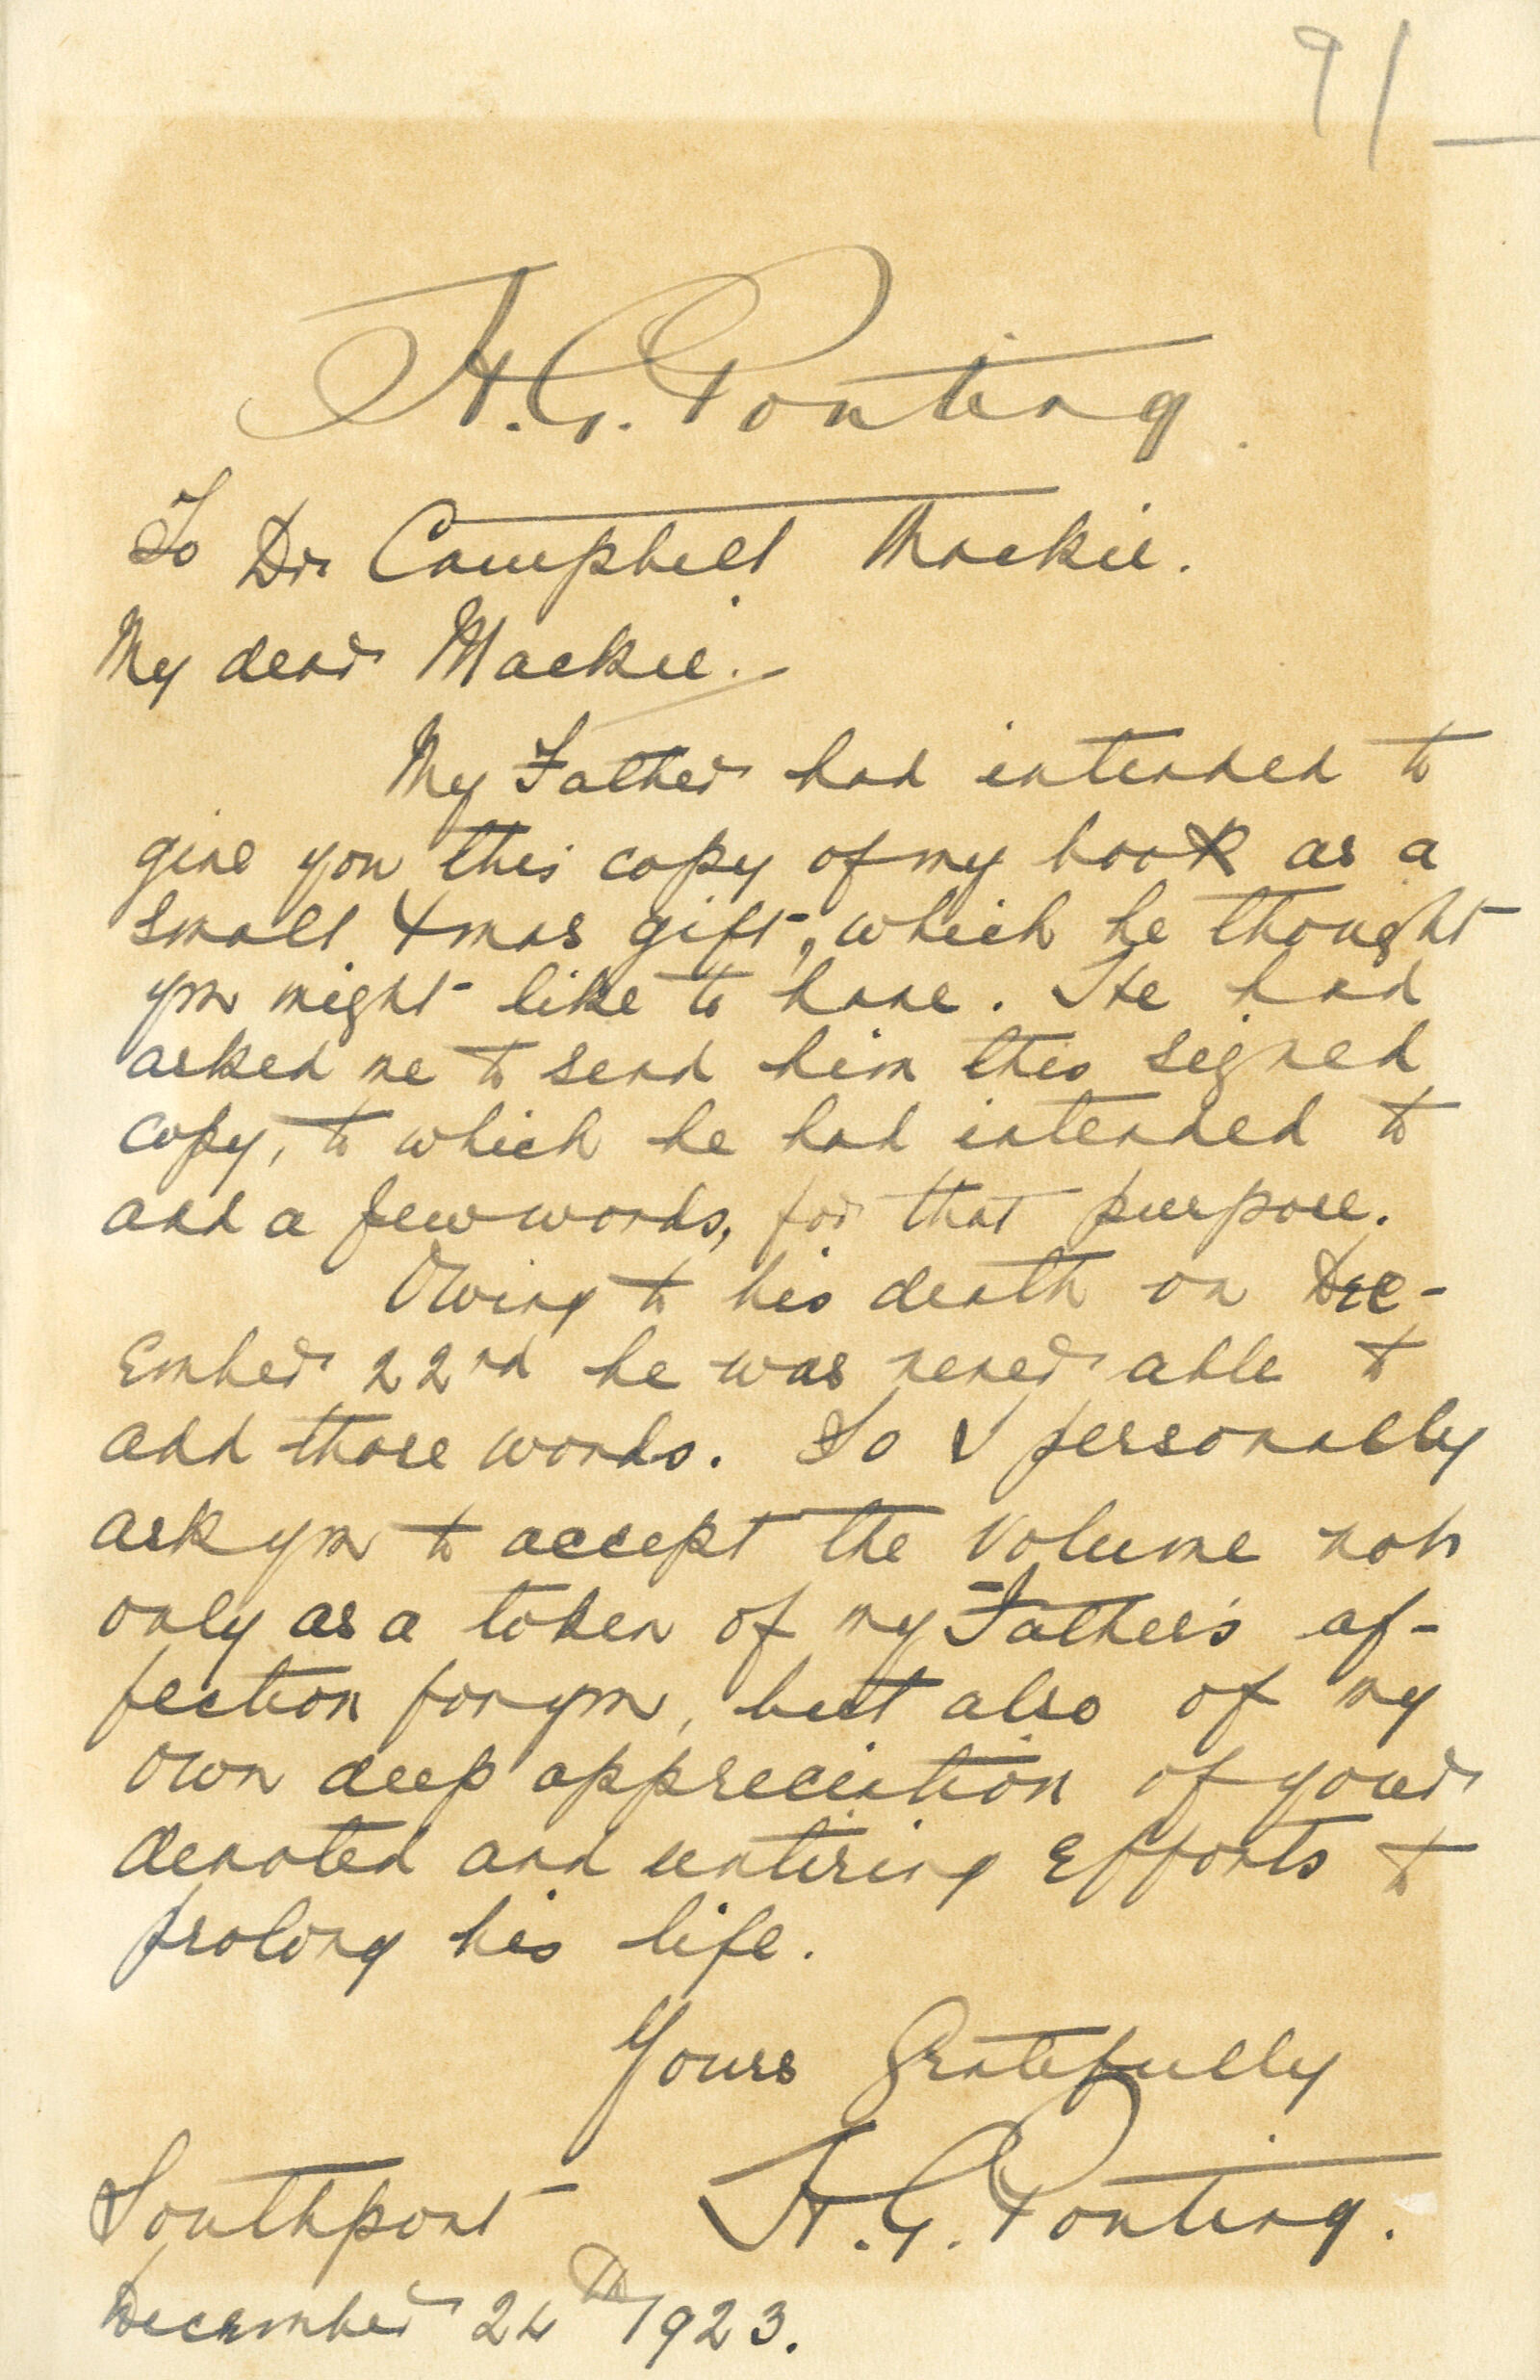 91/-
H. G. Ponting
To Dr Campbell Mackie.
My dear Mackie.-
My Father had intended to
give you this copy of my book as a
small Xmas gift, which he thought
you might like to have. He had
asked me to send him this signed
copy, to which he had intended to
add a few words, for that purpose.
Owing to his death on Dec-
ember 22nd he was never able to
add those words. So I personally
ask you to accept the volume not
only as a token of my Father's af-
fection for you, but also of my
own deep appreciation of your
devoted and untiring efforts to
prolong his life.
Yours Gratefully
Southport H. G. Ponting.
December 24th 1923.